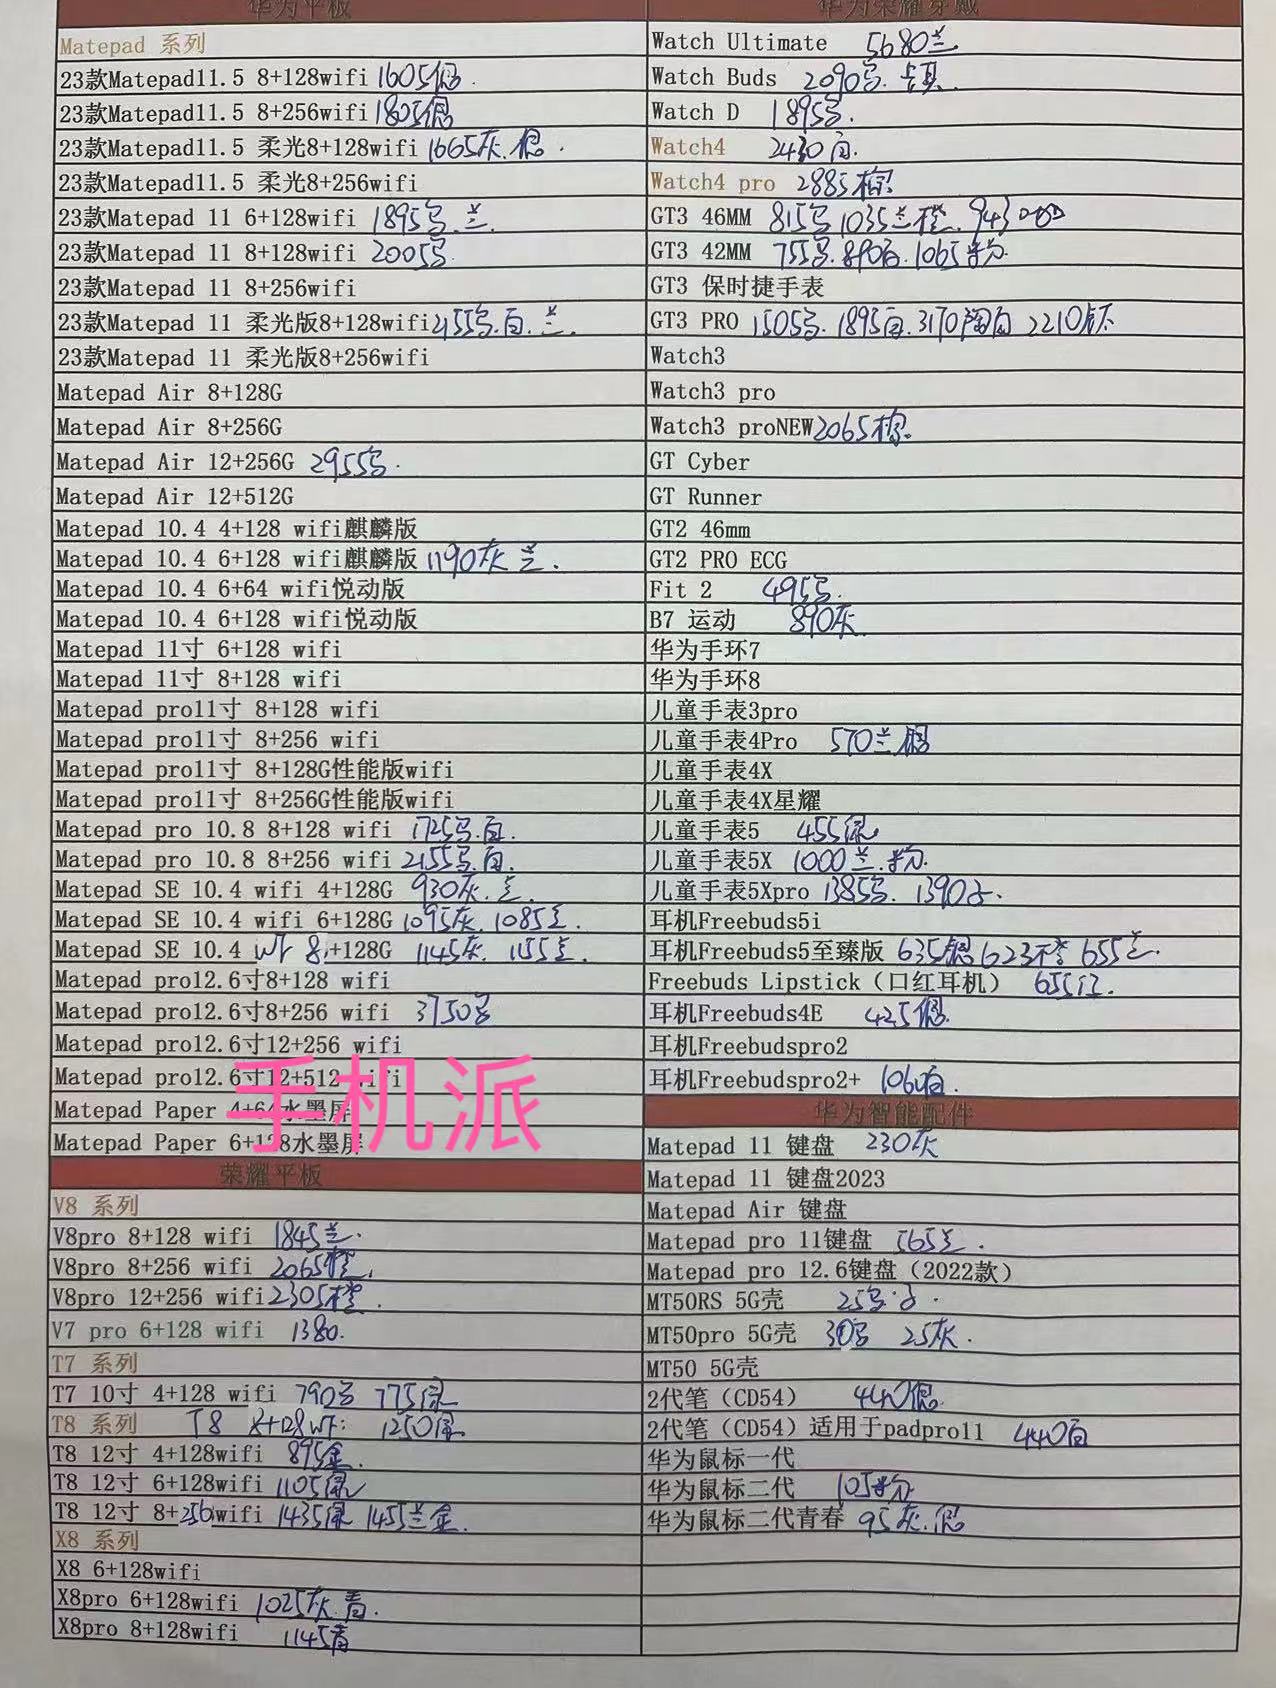 华为平板
Matepad 系列
23款Matepad11.5 8+128wifi 1605银.
23款Matepad11.5 8+256wifi 1805银
23款Matepad11.5 柔光8+128wifi 1665灰.银.
23款Matepad11.5 柔光8+256wifi
23款Matepad 11 6+128wifi 1895 兰.
23款Matepad 11 8+128wifi 2005
23款Matepad 11 8+256wifi
23款Matepad 11 柔光版8+128wifi 2155 白.兰.
23款Matepad 11 柔光版8+256wifi
Matepad Air 8+128G
Matepad Air 8+256G
Matepad Air 12+256G 2955
Matepad Air 12+512G
Matepad 10.4 4+128 wifi麒麟版
Matepad 10.4 6+128 wifi麒麟版 1190灰 兰.
Matepad 10.4 6+64 wifi悦动版
Matepad 10.4 6+128 wifi悦动版
Matepad 11寸 6+128 wifi
Matepad 11寸 8+128 wifi
Matepad pro11寸 8+128 wifi
Matepad pro11寸 8+256 wifi
Matepad pro11寸 8+128G性能版wifi
Matepad pro11寸 8+256G性能版wifi
Matepad pro 10.8 8+128 wifi 1725 白.
Matepad pro 10.8 8+256 wifi 2155 白.
Matepad SE 10.4 wifi 4+128G 930灰.兰.
Matepad SE 10.4 wifi 6+128G 1095灰.1085兰.
Matepad SE 10.4 wf 8+128G 1145灰. 1155兰.
Matepad pro12.6寸8+128 wifi
Matepad pro12.6寸8+256 wifi 3750
Matepad pro12.6寸12+256 wifi
Matepad pro12.6寸12+512 wifi
手机派
Matepad Paper 4+64水墨屏
Matepad Paper 6+128水墨屏
荣耀平板
V8 系列
V8pro 8+128 wifi 1845兰.
V8pro 8+256 wifi 2065橙.
V8pro 12+256 wifi 2305橙.
V7 pro 6+128 wifi 1380.
T7 系列
T7 10寸 4+128 wifi 790 775绿
T8 系列 T8 8+128wf: 1250绿
T8 12寸 4+128wifi 895金.
T8 12寸 6+128wifi 1105绿
T8 12寸 8+256wifi 1435绿 1455兰金.
X8 系列
X8 6+128wifi
X8pro 6+128wifi 1025灰.青.
X8pro 8+128wifi 1145青
华为荣耀穿戴
Watch Ultimate 5680兰
Watch Buds 2090
Watch D 1895
Watch4 2430白.
Watch4 pro 2885棕.
GT3 46MM 815 1035兰橙.
GT3 42MM 755 890白.1065粉
GT3 保时捷手表
GT3 PRO 1505 1895白.3170陶白 2210钛
Watch3
Watch3 pro
Watch3 proNEW 2065棕.
GT Cyber
GT Runner
GT2 46mm
GT2 PRO ECG
Fit 2 495
B7 运动 890灰
华为手环7
华为手环8
儿童手表3pro
儿童手表4Pro 570兰.银
儿童手表4X
儿童手表4X星耀
儿童手表5 455绿
儿童手表5X 1000兰.粉.
儿童手表5Xpro 1385 1390
耳机Freebuds5i
耳机Freebuds5至臻版 635银 623橙 655兰.
Freebuds Lipstick（口红耳机） 655红.
耳机Freebuds4E 425银.
耳机Freebudspro2
耳机Freebudspro2+ 白.
华为智能配件
Matepad 11 键盘 230灰
Matepad 11 键盘2023
Matepad Air 键盘
Matepad pro 11键盘 565兰.
Matepad pro 12.6键盘（2022款）
MT50RS 5G壳 25
MT50pro 5G壳 30 25灰.
MT50 5G壳
2代笔（CD54） 440银.
2代笔（CD54）适用于padpro11 440白
华为鼠标一代
华为鼠标二代 105粉
华为鼠标二代青春 95灰.银